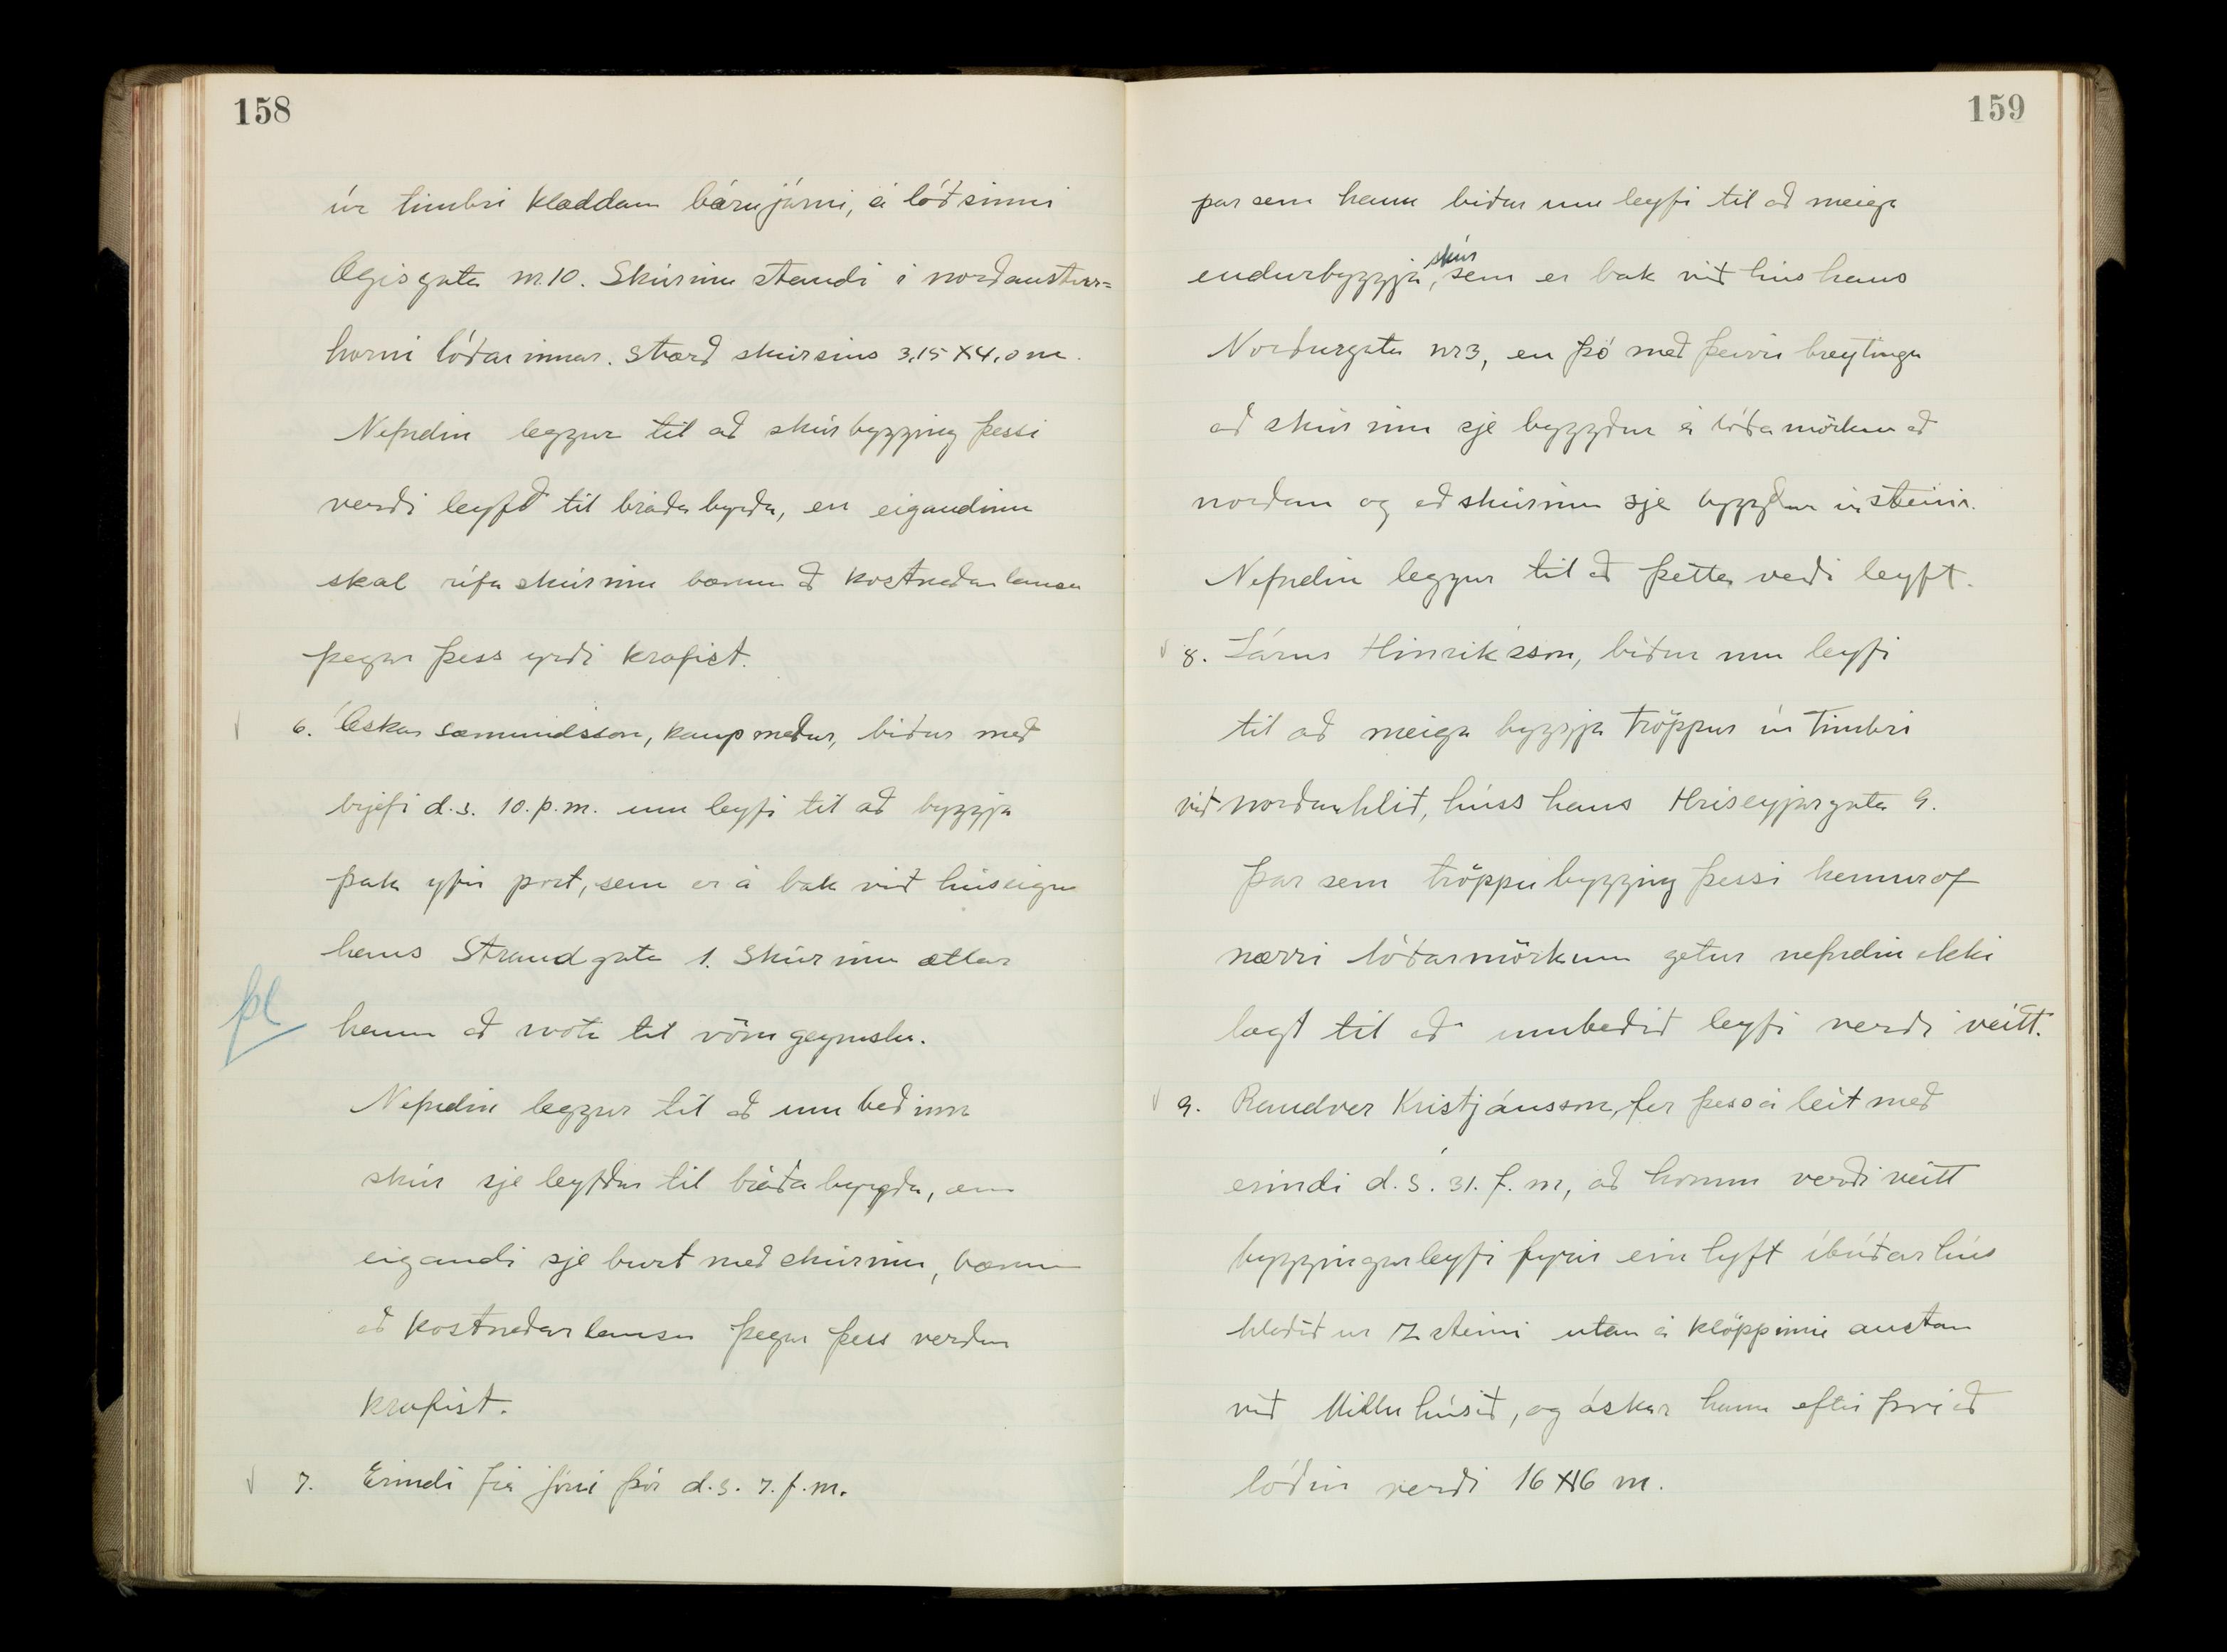 158
úr timbri klæddan bárujárni, á lóð sinni
Ægisgata nr. 10. Skúrinn standi í norðaustur=
horni lóðarinnar. Stærð skúrsins 3,15 x 4,0 m.
Nefndin leggur til að skúrbygging þessi
verði leyfð til bráðabyrgða, en eigandinn
skal rífa skúrinn bænum að kostnaðarlausu
þegar þess yrði krafist.
6. Óskar Sæmundsson, kaupmaður, biður með
brjefi d.s. 10. þ.m. um leyfi til að byggja
þak yfir port, sem er á bak við húseign
hans Strandgata 1. Skúrinn ætlar
þl
hann að nota til vörugeymslu.
Nefndin leggur til að umbeðinn
skúr sje leyfður til bráðabyrgða, en
eigandi sje burt með skúrinn, bænum
að kostnaðarlausu þegar þess verður
krafist.
7. Erindi frá Jóni Þór d.s. 7. f.m.
159
þar sem hann biður um leyfi til að meiga
skúr
endurbyggja, sem er bak við hús hans
Norðurgata nr 3, en þó með þeirri breytingu
að skúrinn sje byggður á lóðamörkum að
norðan og að skúrinn sje byggður úr steini.
Nefndin leggur til að þetta verði leyft.
8. Lárus Hinriksson, biður um leyfi
til að meiga byggja tröppur úr timbri
við norðurhlið, húss hans Hríseyjargata 9.
Þar sem tröppubygging þessi kemur of
nærri lóðarmörkum getur nefndin ekki
lagt til að umbeðið leyfi verði veitt.
9. Randver Kristjánsson, fer þess á leit með
erindi d.s. 31. f.m, að honum verði veitt
byggingarleyfi fyrir einlyft íbúðarhús
hlaðið úr r steini utan á klöppinni austan
við Millu húsið, og óskar hann eftir því að
lóðin verði 16 x 16 m.